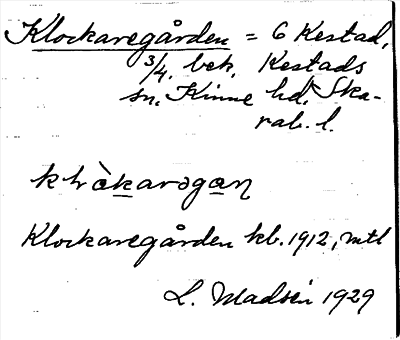 Klockaregården = 6 Kestad,
3/4, bek, Kestads
sn, Kinne hd, Ska-
rab. l.
klὰkarəgaɳ
Klockaregården kb. 1912, mtl
L. Madsén 1929